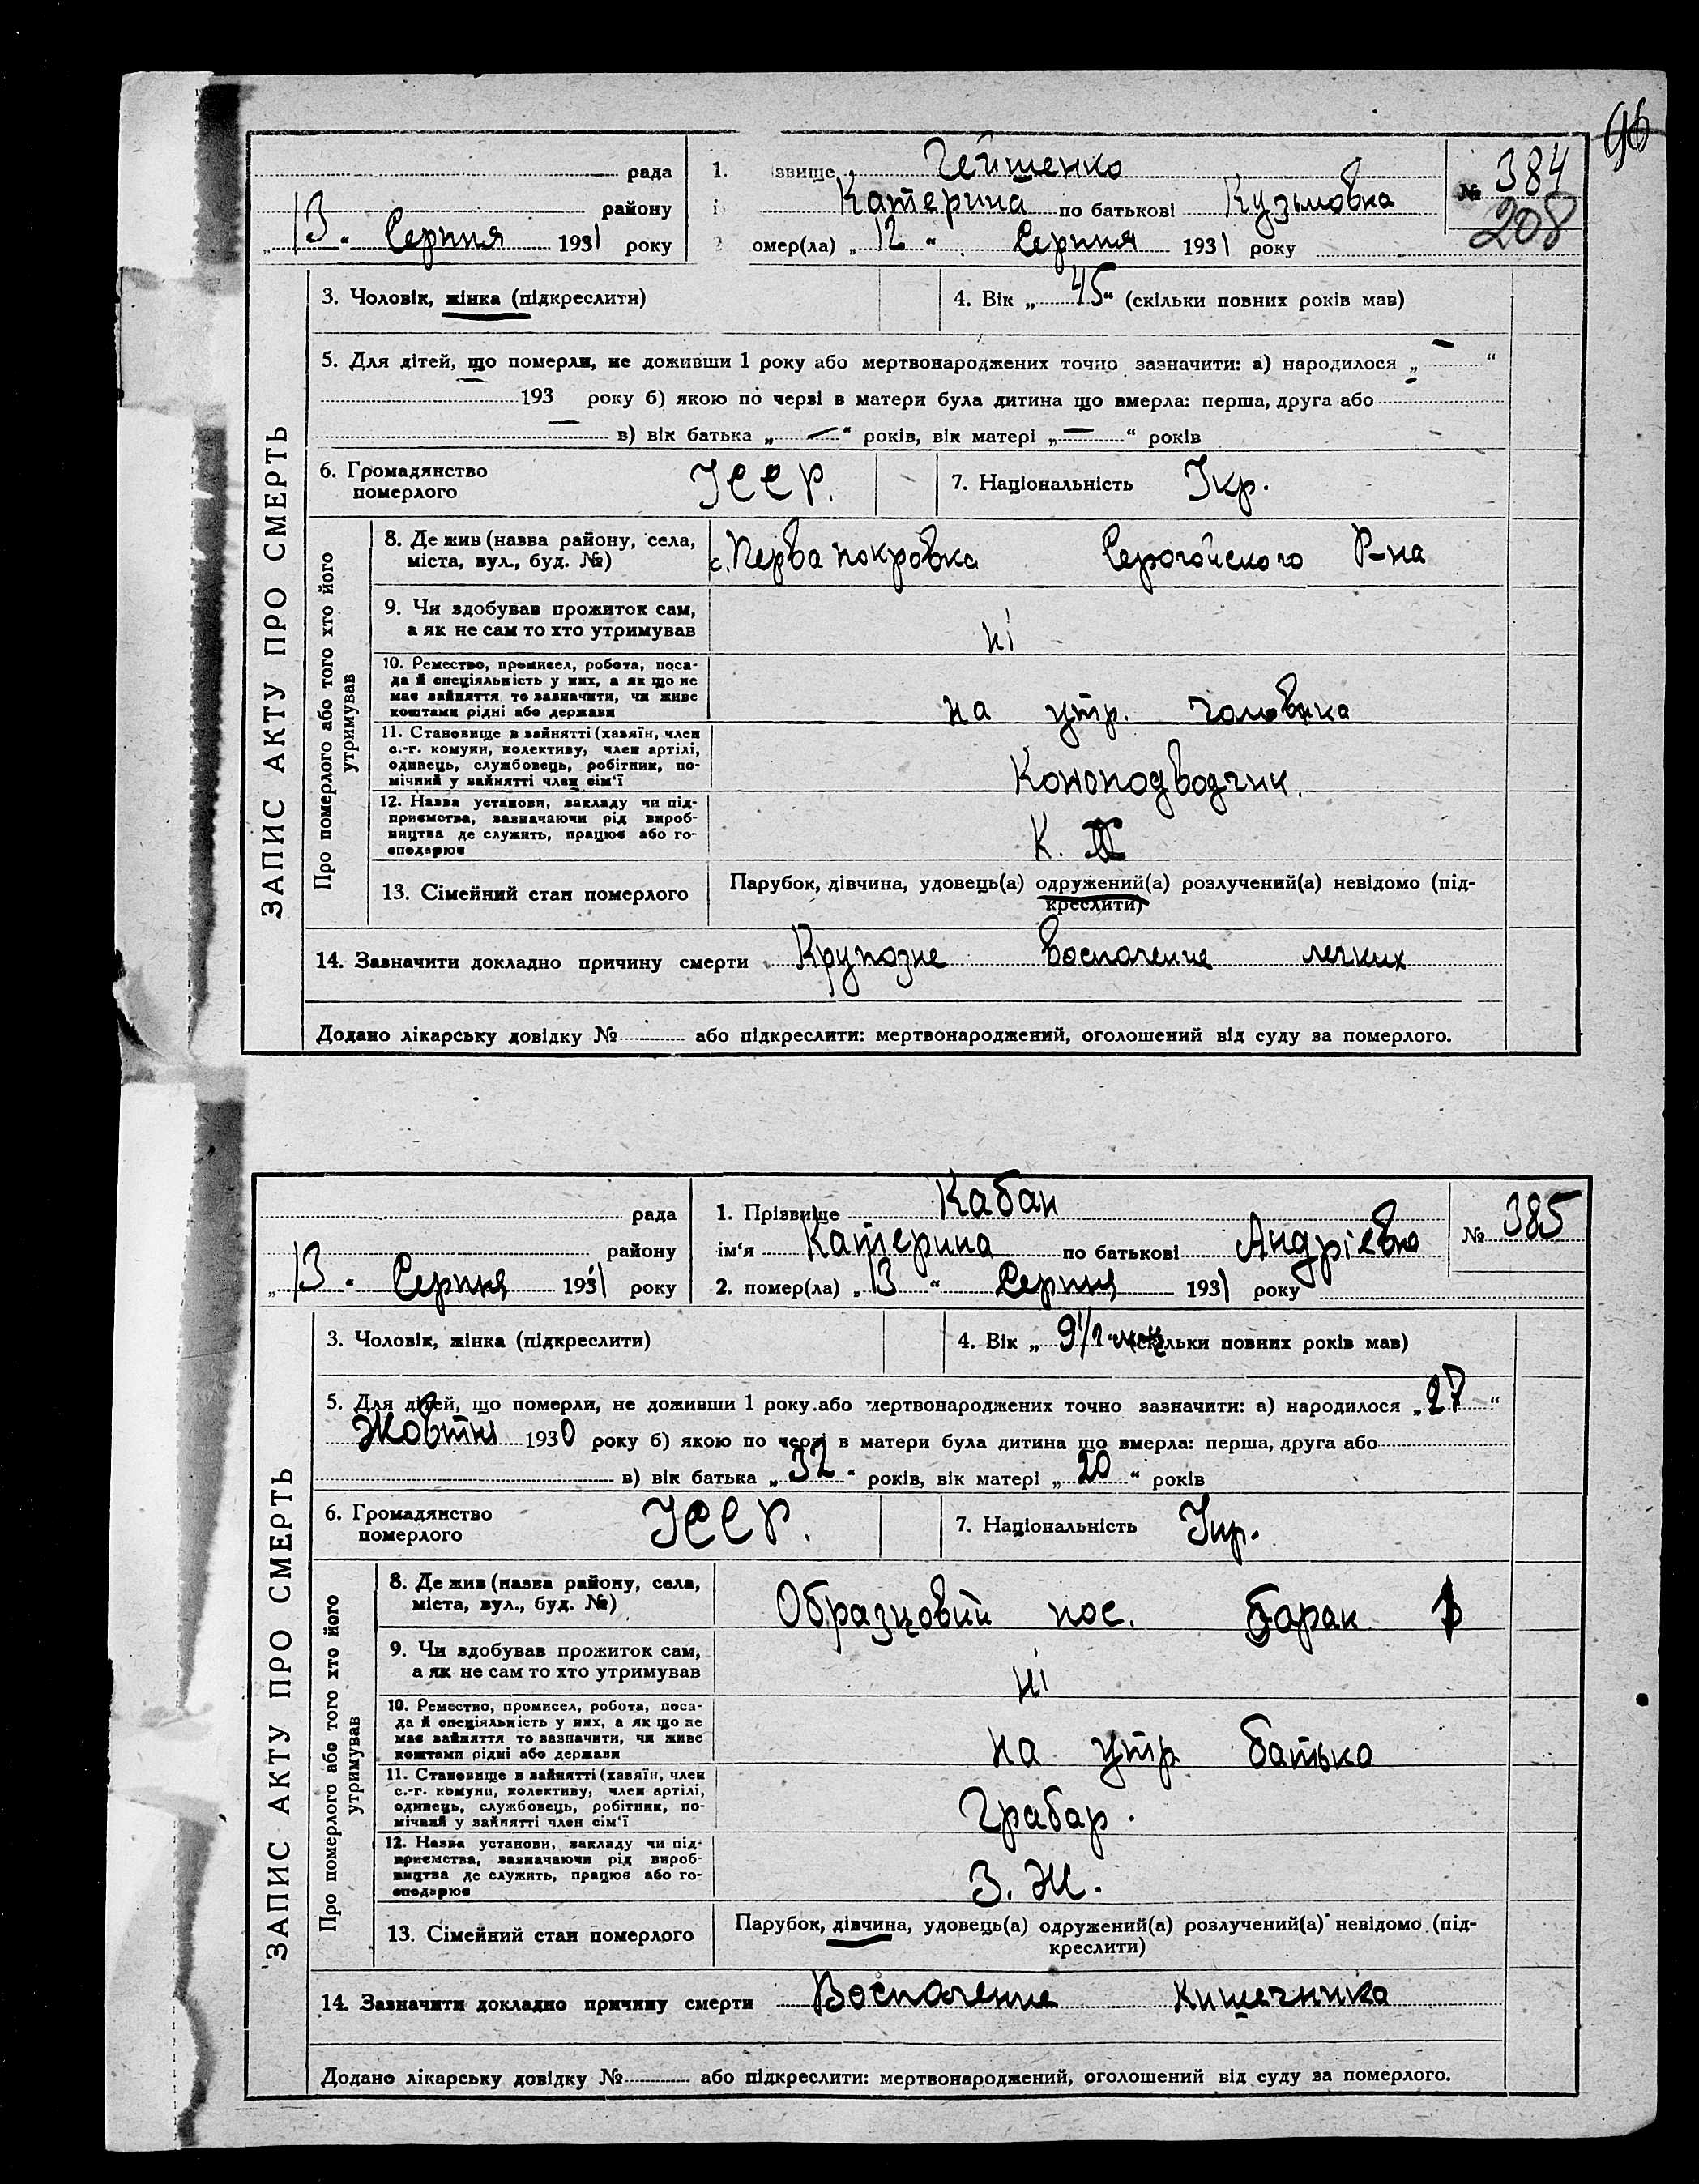 96
рада
району
„13“ Серпня 1931 року
1. звище Гейшенко
і Катерина по батькові Кузьмовна
омер(ла) „12“ Серпня 1931 року
№ 384
208
ЗАПИС АКТУ ПРО СМЕРТЬ
3. Чоловік, жінка (підкреслити)
4. Вік „45“ (скільки повних років мав)
5. Для дітей, що померли, не доживши 1 року або мертвонароджених точно зазначити: а) народилося „ — “
— 193 року б) якою по черзі в матери була дитина що вмерла: перша, друга або -
— в) вік батька „ — “ років, вік матері „ — “ років
6. Громадянство
померлого
УССР.
7. Національність Укр.
Про померлого або того хто його
утримував
8. Де жив (назва району, села,
міста, вул., буд. №)
с. Перва покровка Серогойского Р-на
9. Чи здобував прожиток сам,
а як не сам то хто утримував
ні
10. Ремество, промисел, робота, поса-
да й спеціяльність у них, а як що не
має зайняття то зазначити, чи живе
коштами рідні або держави
на утр. чоловіка
11. Становище в зайнятті (хазяїн, член
с.-г. комуни, колективу, член артілі,
одинець, службовець, робітник, по-
мічний у зайнятті член сім'ї
Коноподводчик.
12. Назва установи, закладу чи під-
приємства, зазначаючи рід вироб-
ництва де служить, працює або го-
сподарює
К.
13. Сімейний стан померлого
Парубок, дівчина, удовець(а) одружений(а) розлучений(а) невідомо (під-
креслити)
14. Зазначити докладно причину смерти Крупозне воспаление легких
Додано лікарську довідку № або підкреслити: мертвонароджений, оголошений від суду за померлого.
рада
району
„13“ Серпня 1931 року
1. Прізвище Кабан
ім'я Катерина по батькові Андріевна
2. помер(ла) „13“ Серпня 1931 року
№ 385
ЗАПИС АКТУ ПРО СМЕРТЬ
3. Чоловік, жінка (підкреслити)
4. Вік „9 1/2 м-ц (скільки повних років мав)
5. Для дітей, що померли, не доживши 1 року або мертвонароджених точно зазначити: а) народилося „27“
Жовтня 1930 року б) якою по черзі в матери була дитина що вмерла: перша, друга або
в) вік батька „32“ років, вік матері „20“ років
6. Громадянство
померлого
УССР.
7. Національність Укр.
Про померлого або того хто його
утримував
8. Де жив (назва району, села,
міста, вул., буд. №)
Образцовий пос. барак
9. Чи здобував прожиток сам,
а як не сам то хто утримував
ні
10. Ремество, промисел, робота, поса-
да й спеціяльність у них, а як що не
має зайняття то зазначити, чи живе
коштами рідні або держави
на утр. батька
11. Становище в зайнятті (хазяїн, член
с.-г. комуни, колективу, член артілі,
одинець, службовець, робітник, по-
мічний у зайнятті член сім'ї
Грабар.
12. Назва установи, закладу чи під-
приємства, зазначаючи рід вироб-
ництва де служить, працює або го-
сподарює
З. Ж.
13. Сімейний стан померлого
Парубок, дівчина, удовець(а) одружений(а) розлучений(а) невідомо (під-
креслити)
14. Зазначити докладно причину смерти Воспаление Кишечника
Додано лікарську довідку № або підкреслити: мертвонароджений, оголошений від суду за померлого.